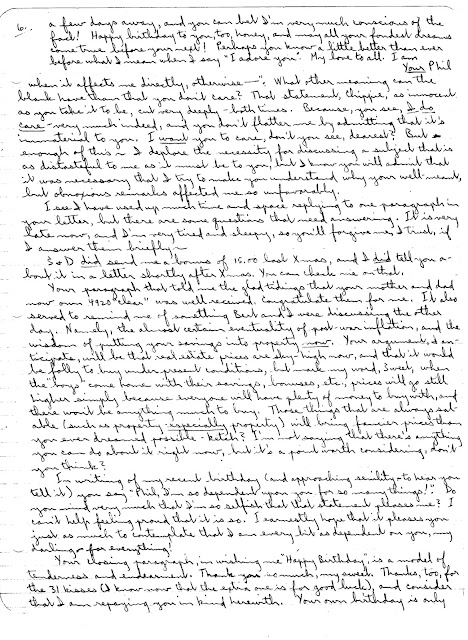 6..
a few days away, and you can bet I'm very much conscious of the
fact! Happy birthday to you, too, honey, and may all your fondest dreams
come true before your next! Perhaps you know a little better than ever
before what I mean when I say "I adore you". My love to all. I am
Your Phil
when it affects me directly, otherwise —". What other meaning can the
blank have than that you don't care? That statement, Chippie, as innocent
as you take it to be, cut very deeply - both times. Because, you see, I do
care - very much indeed, and you don't flatter me by admitting that it's
immaterial to you. I want you to care, don't you see, dearest? But -
enough of this - I deplore the necessity for discussing a subject that is
as distasteful to me as it must be to you, but I know you will admit that
it was necessary that I try to make you understand why your well-meant,
but obnoxious remarks affected me so unfavorably.
I see I have used up much time and space replying to one paragraph in
your letter, but there are some questions that need answering. It is very
late now, and I'm very tired and sleepy, so you'll forgive me, I trust, if
I answer them briefly -
S & D did send me a bonus of 15.00 last Xmas, and I did tell you a-
bout it in a letter shortly after Xmas. You can check me on that.
Your paragraph that told me the glad tidings that your mother and dad
now own 4920 "clear" was well received. Congratulate them for me. It also
served to remind me of something Bert and I were discussing the other
day. Namely, the almost certain eventuality of post-war inflation, and the
wisdom of putting your savings into property now. Your argument, I an-
ticipate, will be that real estate prices are sky-high now, and that it would
be folly to buy under present conditions, but mark my word, Sweet, when
the "boys" come home with their savings, bonuses, etc., prices will go still
higher simply because everyone will have plenty of money to buy with, and
there won't be anything much to buy. Those things that are always sal-
able (such as property - especially property) will bring fancier prices than
you ever dreamed possible - ketch? I'm not saying that there's anything
you can do about it right now, but it's a point worth considering, don't
you think?
In writing of my recent birthday (and approaching senility - to hear you
tell it) you say "Phil, I'm so dependent upon you for so many things!" Do
you mind very much that I'm so selfish that that statement pleases me? I
can't help feeling proud that it is so. I earnestly hope that it pleases you
just as much to contemplate that I am every bit as dependent on you, my
darling - for everything!
Your closing paragraph, in wishing me "Happy Birthday", is a model of
tenderness and endearment. Thank you so much, my sweet. Thanks, too, for
the 31 kisses (I know now that the extra one is for good luck), and consider
that I am repaying you in kind herewith. Your own birthday is only